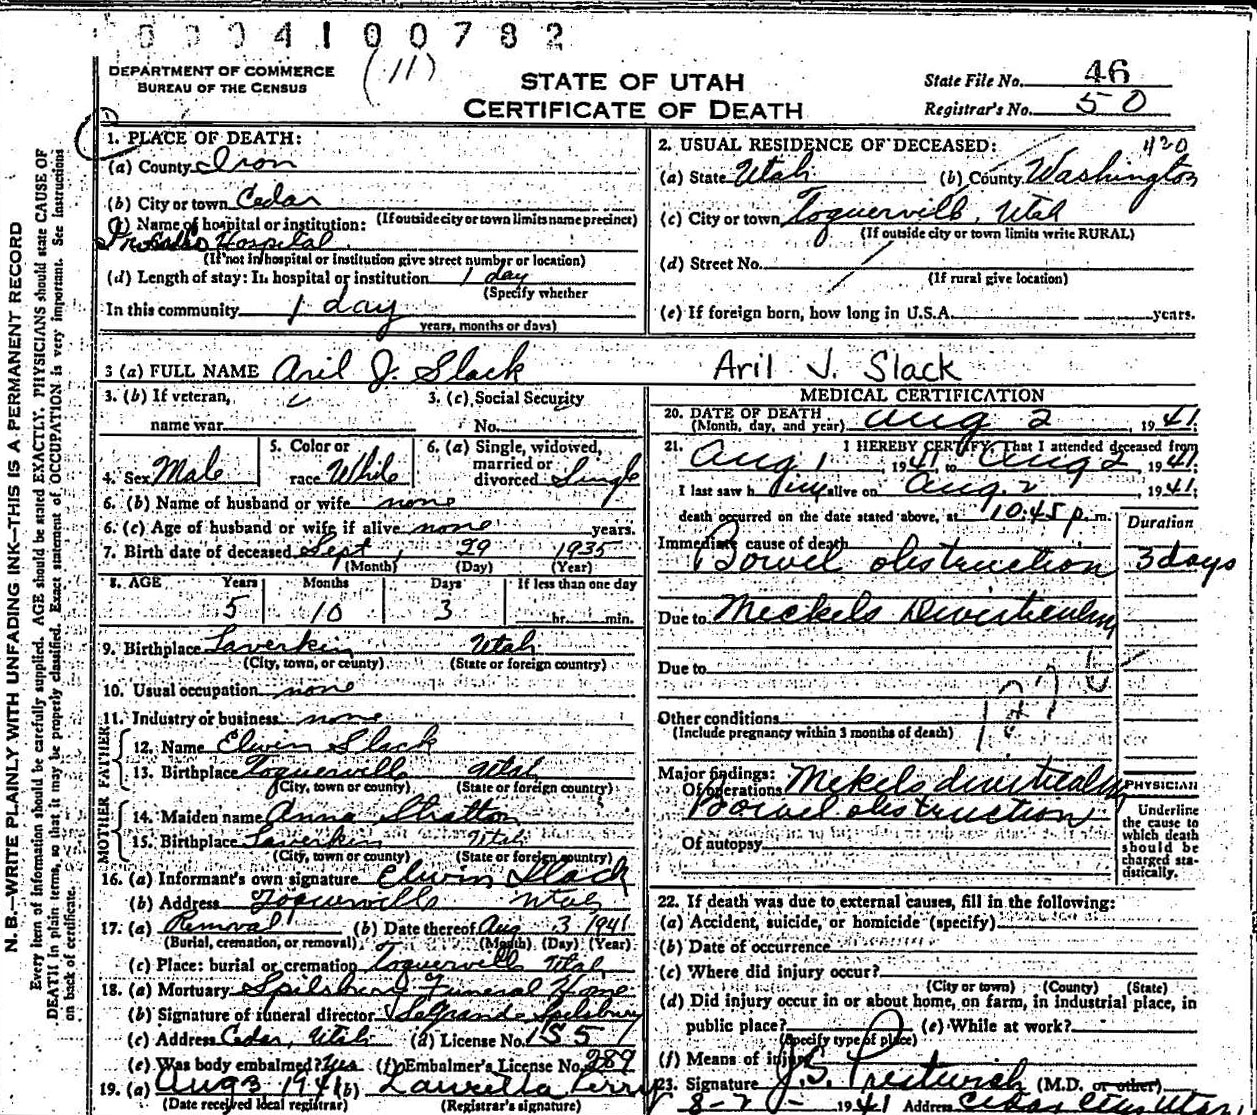 0 0 0 4 1 0 0 7 8 2
DEPARTMENT OF COMMERCE
BUREAU OF THE CENSUS
(11)
STATE OF UTAH
CERTIFICATE OF DEATH
State File No. 46
Registrar's No. 50
N.B.—WRITE PLAINLY WITH UNFADING INK—THIS IS A PERMANENT RECORD
Every item of information should be carefully supplied. AGE should be stated EXACTLY. PHYSICIANS should state CAUSE OF
DEATH in plain terms, so that it may be properly classified. Exact statement of OCCUPATION is very important. See instructions
on back of certificate.
1. PLACE OF DEATH:
(a) County Iron
(b) City or town Cedar
(If outside city or town limits name precinct)
(c) Name of hospital or institution:
Hospital
(If not in hospital or institution give street number or location)
(d) Length of stay: In hospital or institution 1 day
(Specify whether
In this community 1 day
years, months or days)
2. USUAL RESIDENCE OF DECEASED: 420
(a) State Utah (b) County Washington
(c) City or town Toquerville, Utah
(If outside city or town limits write RURAL)
(d) Street No.
(If rural give location)
(e) If foreign born, how long in U.S.A. years.
3 (a) FULL NAME Aril J. Slack Aril J. Slack
3. (b) If veteran, 3. (c) Social Security
name war No.
4. Sex Male 5. Color or race White 6. (a) Single, widowed, married or divorced Single
6. (b) Name of husband or wife none
6. (c) Age of husband or wife if alive none years.
7. Birth date of deceased Sept 29 1935
(Month) (Day) (Year)
8. AGE Years Months Days If less than one day
5 10 3 hr. min.
9. Birthplace Laverkin Utah
(City, town, or county) (State or foreign country)
10. Usual occupation none
11. Industry or business none
FATHER
12. Name Elwin Slack
13. Birthplace Toquerville Utah
(City, town or county) (State or foreign country)
MOTHER
14. Maiden name Anna Stratton
15. Birthplace Laverkin Utah
(City, town or county) (State or foreign country)
16. (a) Informant's own signature Elwin Slack
(b) Address Toquerville Utah
17. (a) Removal (b) Date thereof Aug 3 1941
(Burial, cremation, or removal) (Month) (Day) (Year)
(c) Place: burial or cremation Toquerville Utah
18. (a) Mortuary Spilsbury Funeral Home
(b) Signature of funeral director LaGrande Spilsbury
(c) Address Cedar, Utah (d) License No. 155
(e) Was body embalmed? Yes (f) Embalmer's License No. 289
19. (a) Aug 3 1941 (b) Laurella Perry
(Date received local registrar) (Registrar's signature)
MEDICAL CERTIFICATION
20. DATE OF DEATH
(Month, day, and year) Aug 2, 1941;
21. I HEREBY CERTIFY, That I attended deceased from
Aug 1, 1941, to Aug 2, 1941;
I last saw him alive on Aug. 2 1941;
death occurred on the date stated above, at 10:45 p. m.
Duration
Immediate cause of death
Bowel obstruction 3 days
Due to Meckels Diverticulum
Due to
Other conditions
(Include pregnancy within 3 months of death)
Major findings:
Of operations Mekels diverticulum
Bowel obstruction
Of autopsy
PHYSICIAN
Underline
the cause to
which death
should be
charged sta-
tistically.
22. If death was due to external causes, fill in the following:
(a) Accident, suicide, or homicide (specify)
(b) Date of occurrence
(c) Where did injury occur?
(City or town) (County) (State)
(d) Did injury occur in or about home, on farm, in industrial place, in
public place? (e) While at work?
(Specify type of place)
(f) Means of injury
23. Signature J.S. Prestwich (M.D. or other)
8-2- 1941 Address Cedar City, Utah